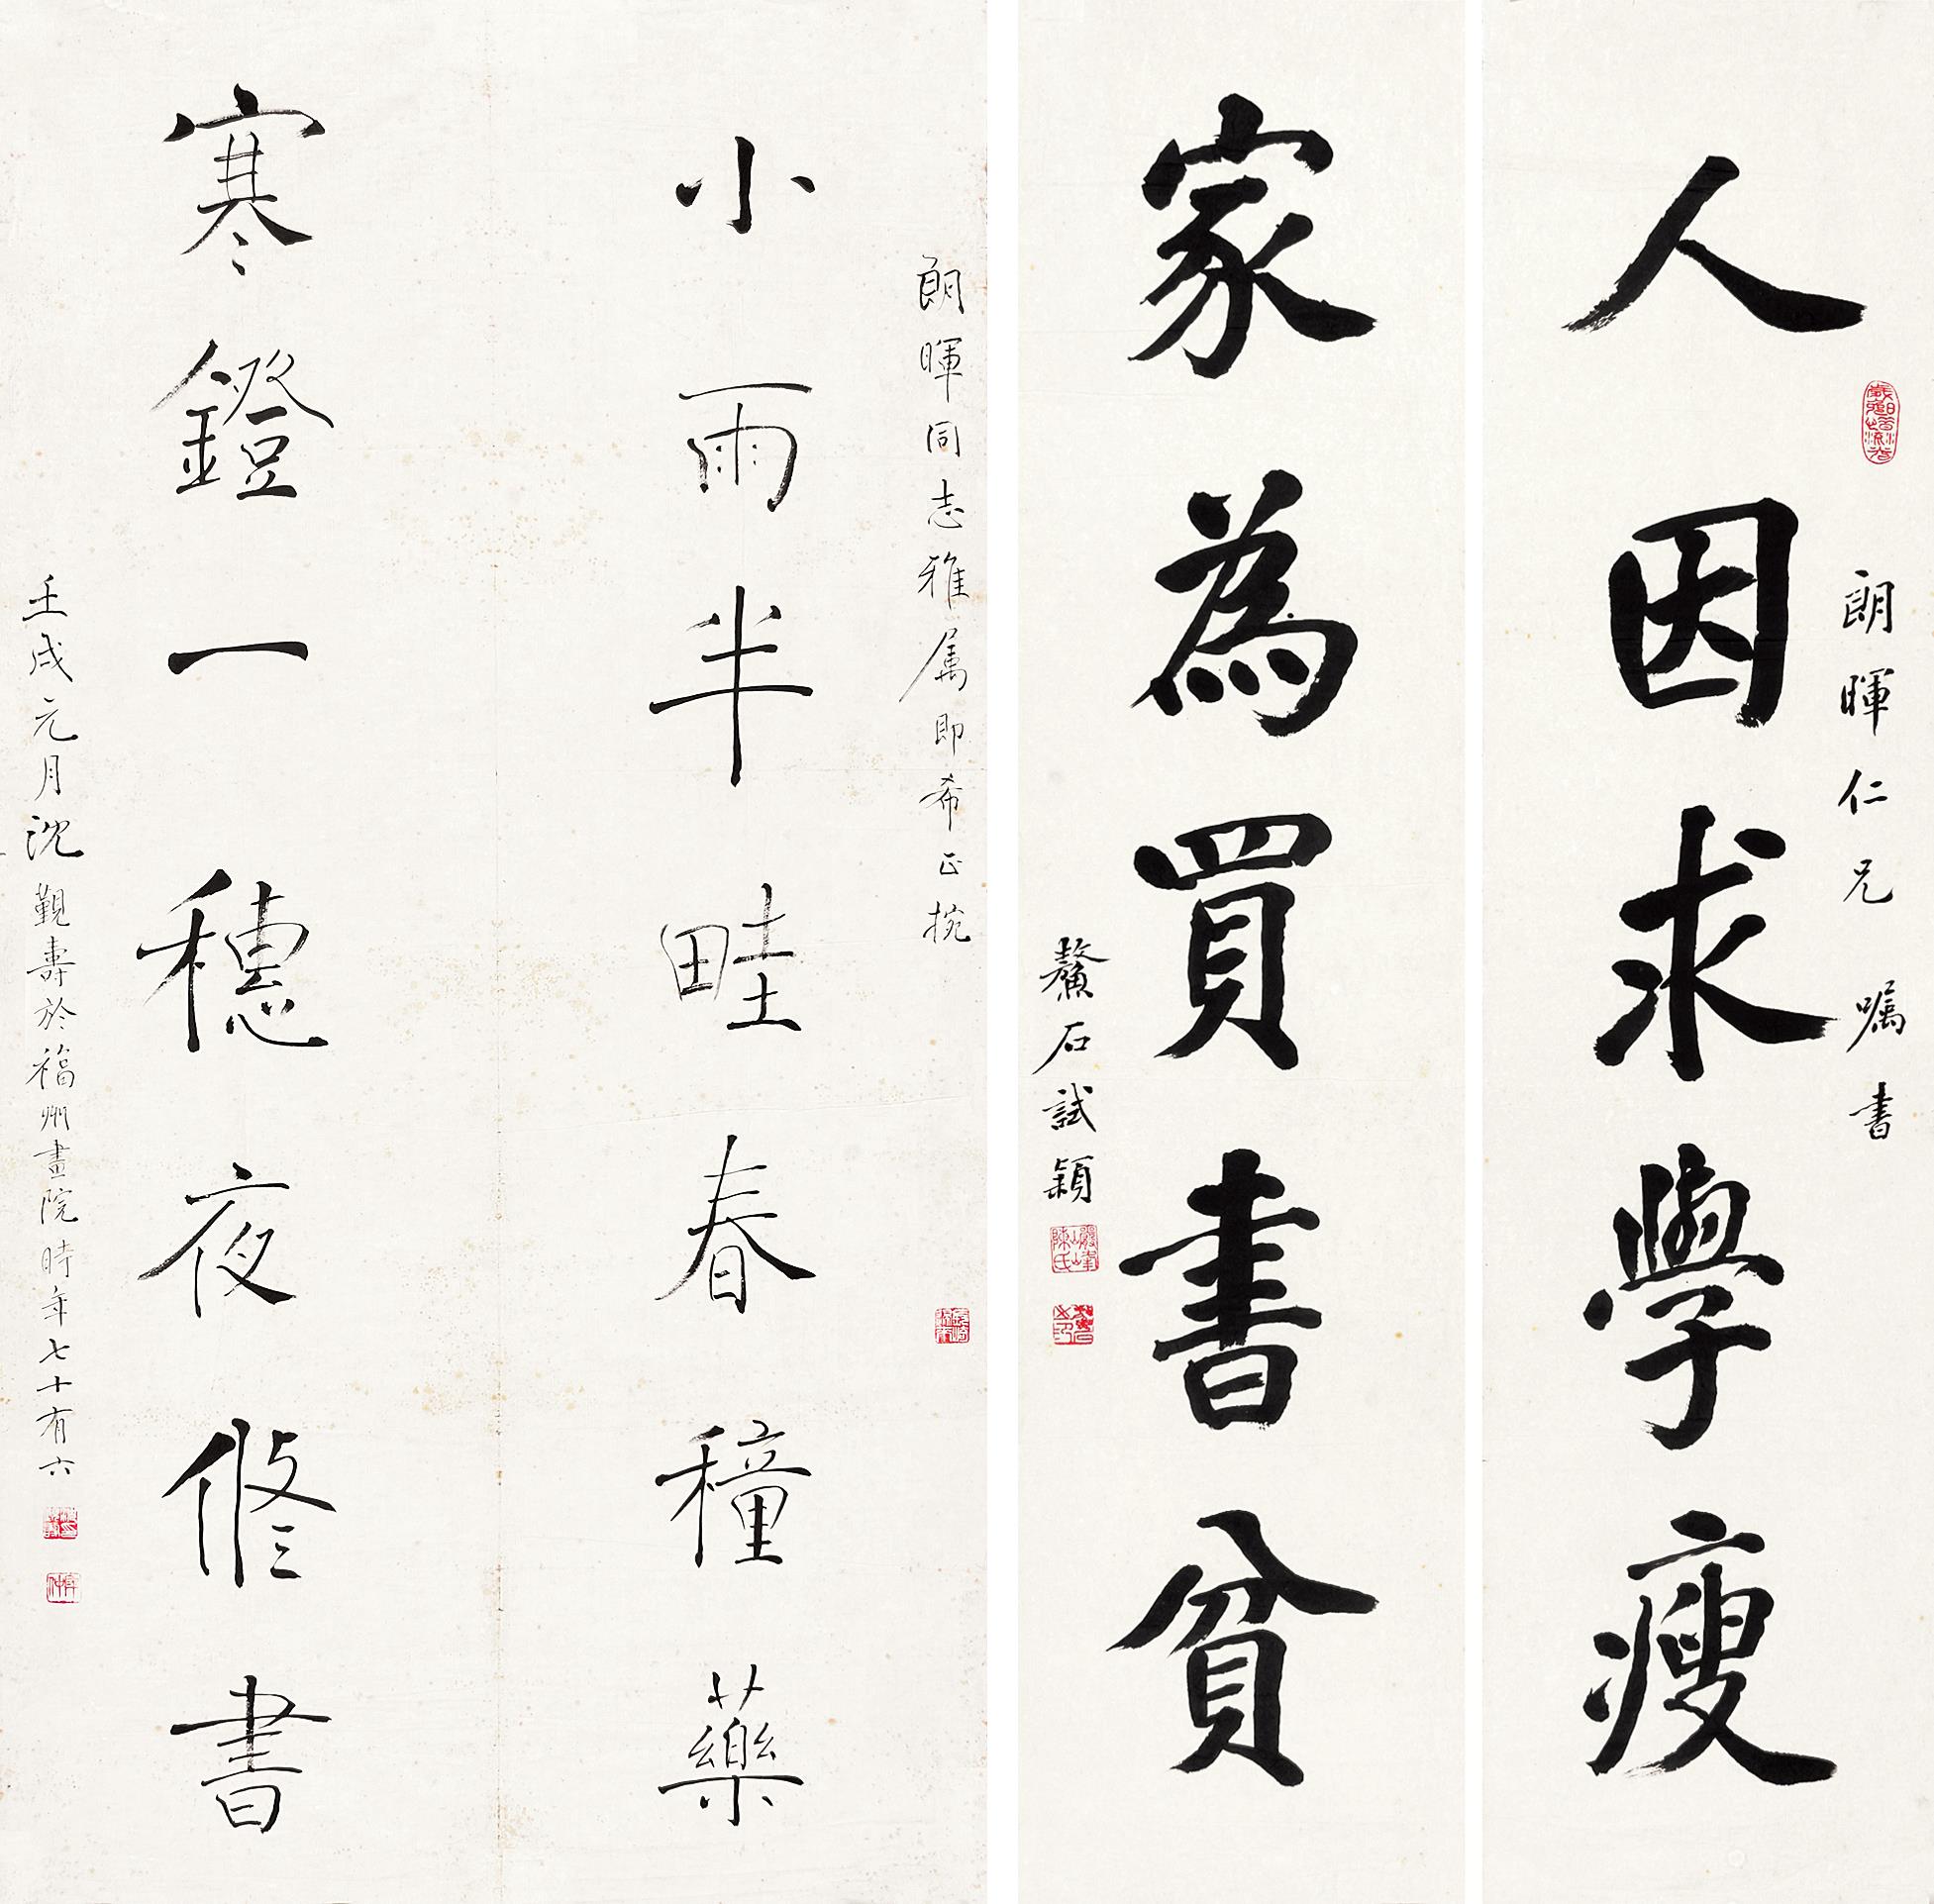 人因求學瘦
朗暉仁兄囑書
家為買書貧
鰲石試穎
朗暉同志雅属即希正捥
小雨半畦春穜藥
寒鐙一穗夜修書
壬戌元月沈覲壽於福州畫院時年七十有六
陳氏